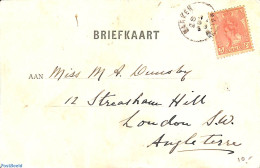 BRIEFKAART
AAN Miss M. A. Dunsby
12 Streatham Hill
London S.W.
Angleterre
10,-